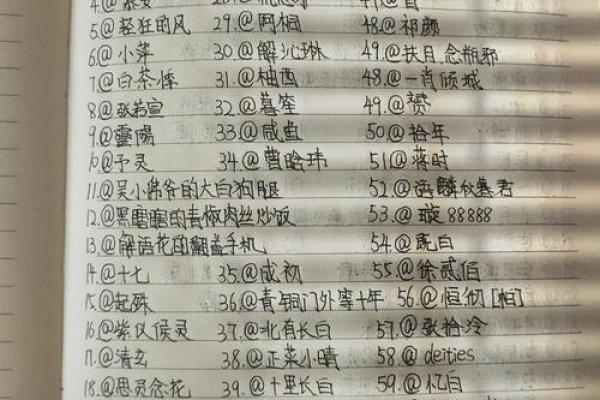 5.@轻狂的风 29.@网桓 48.@祁颜
6.@小萍 30.@解沁琳 49.@扶月.念瓶邪
7.@白茶悸 31.@柚酉 48.@一肖倾城
8.@张若宣 32.@暮笙 49.@赞
9.@靈陽 33.@咸鱼 50.@拾年
10.@予灵 34.@曹晗玮 51@落时
11.@吴小佛爷的大白狗腿 52.@麟秋暮君
12.@黑瞎瞎的青椒肉丝炒饭 53.@璇88888
13.@解语花的翻盖手机 54.@既白
14.@十七 35.@咸初 55.@徐贰佰
15.@起殊 36.@青铜门外等十年 56.@恒彻[桓]
16.@紫仪侯灵 37.@北有长白 57.@张拾泠
17.@清玄 38.@正菜小晴 58.@deities
18.@思灵念花 39.@十里长白 59.@忆白